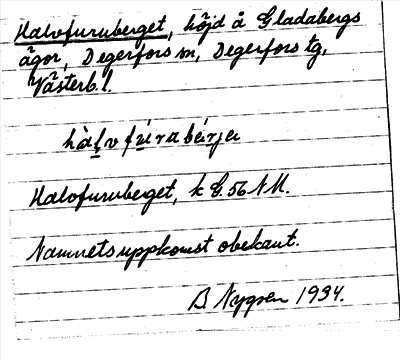 Halvfuruberget, höjd å Gladabergs
ägor, Degerfors sn, Degerfors tg,
Västerb. l.
Halvfuruberget, k G. 56 NM.
Namnets uppkomst obekant.
B Nygren 1934.